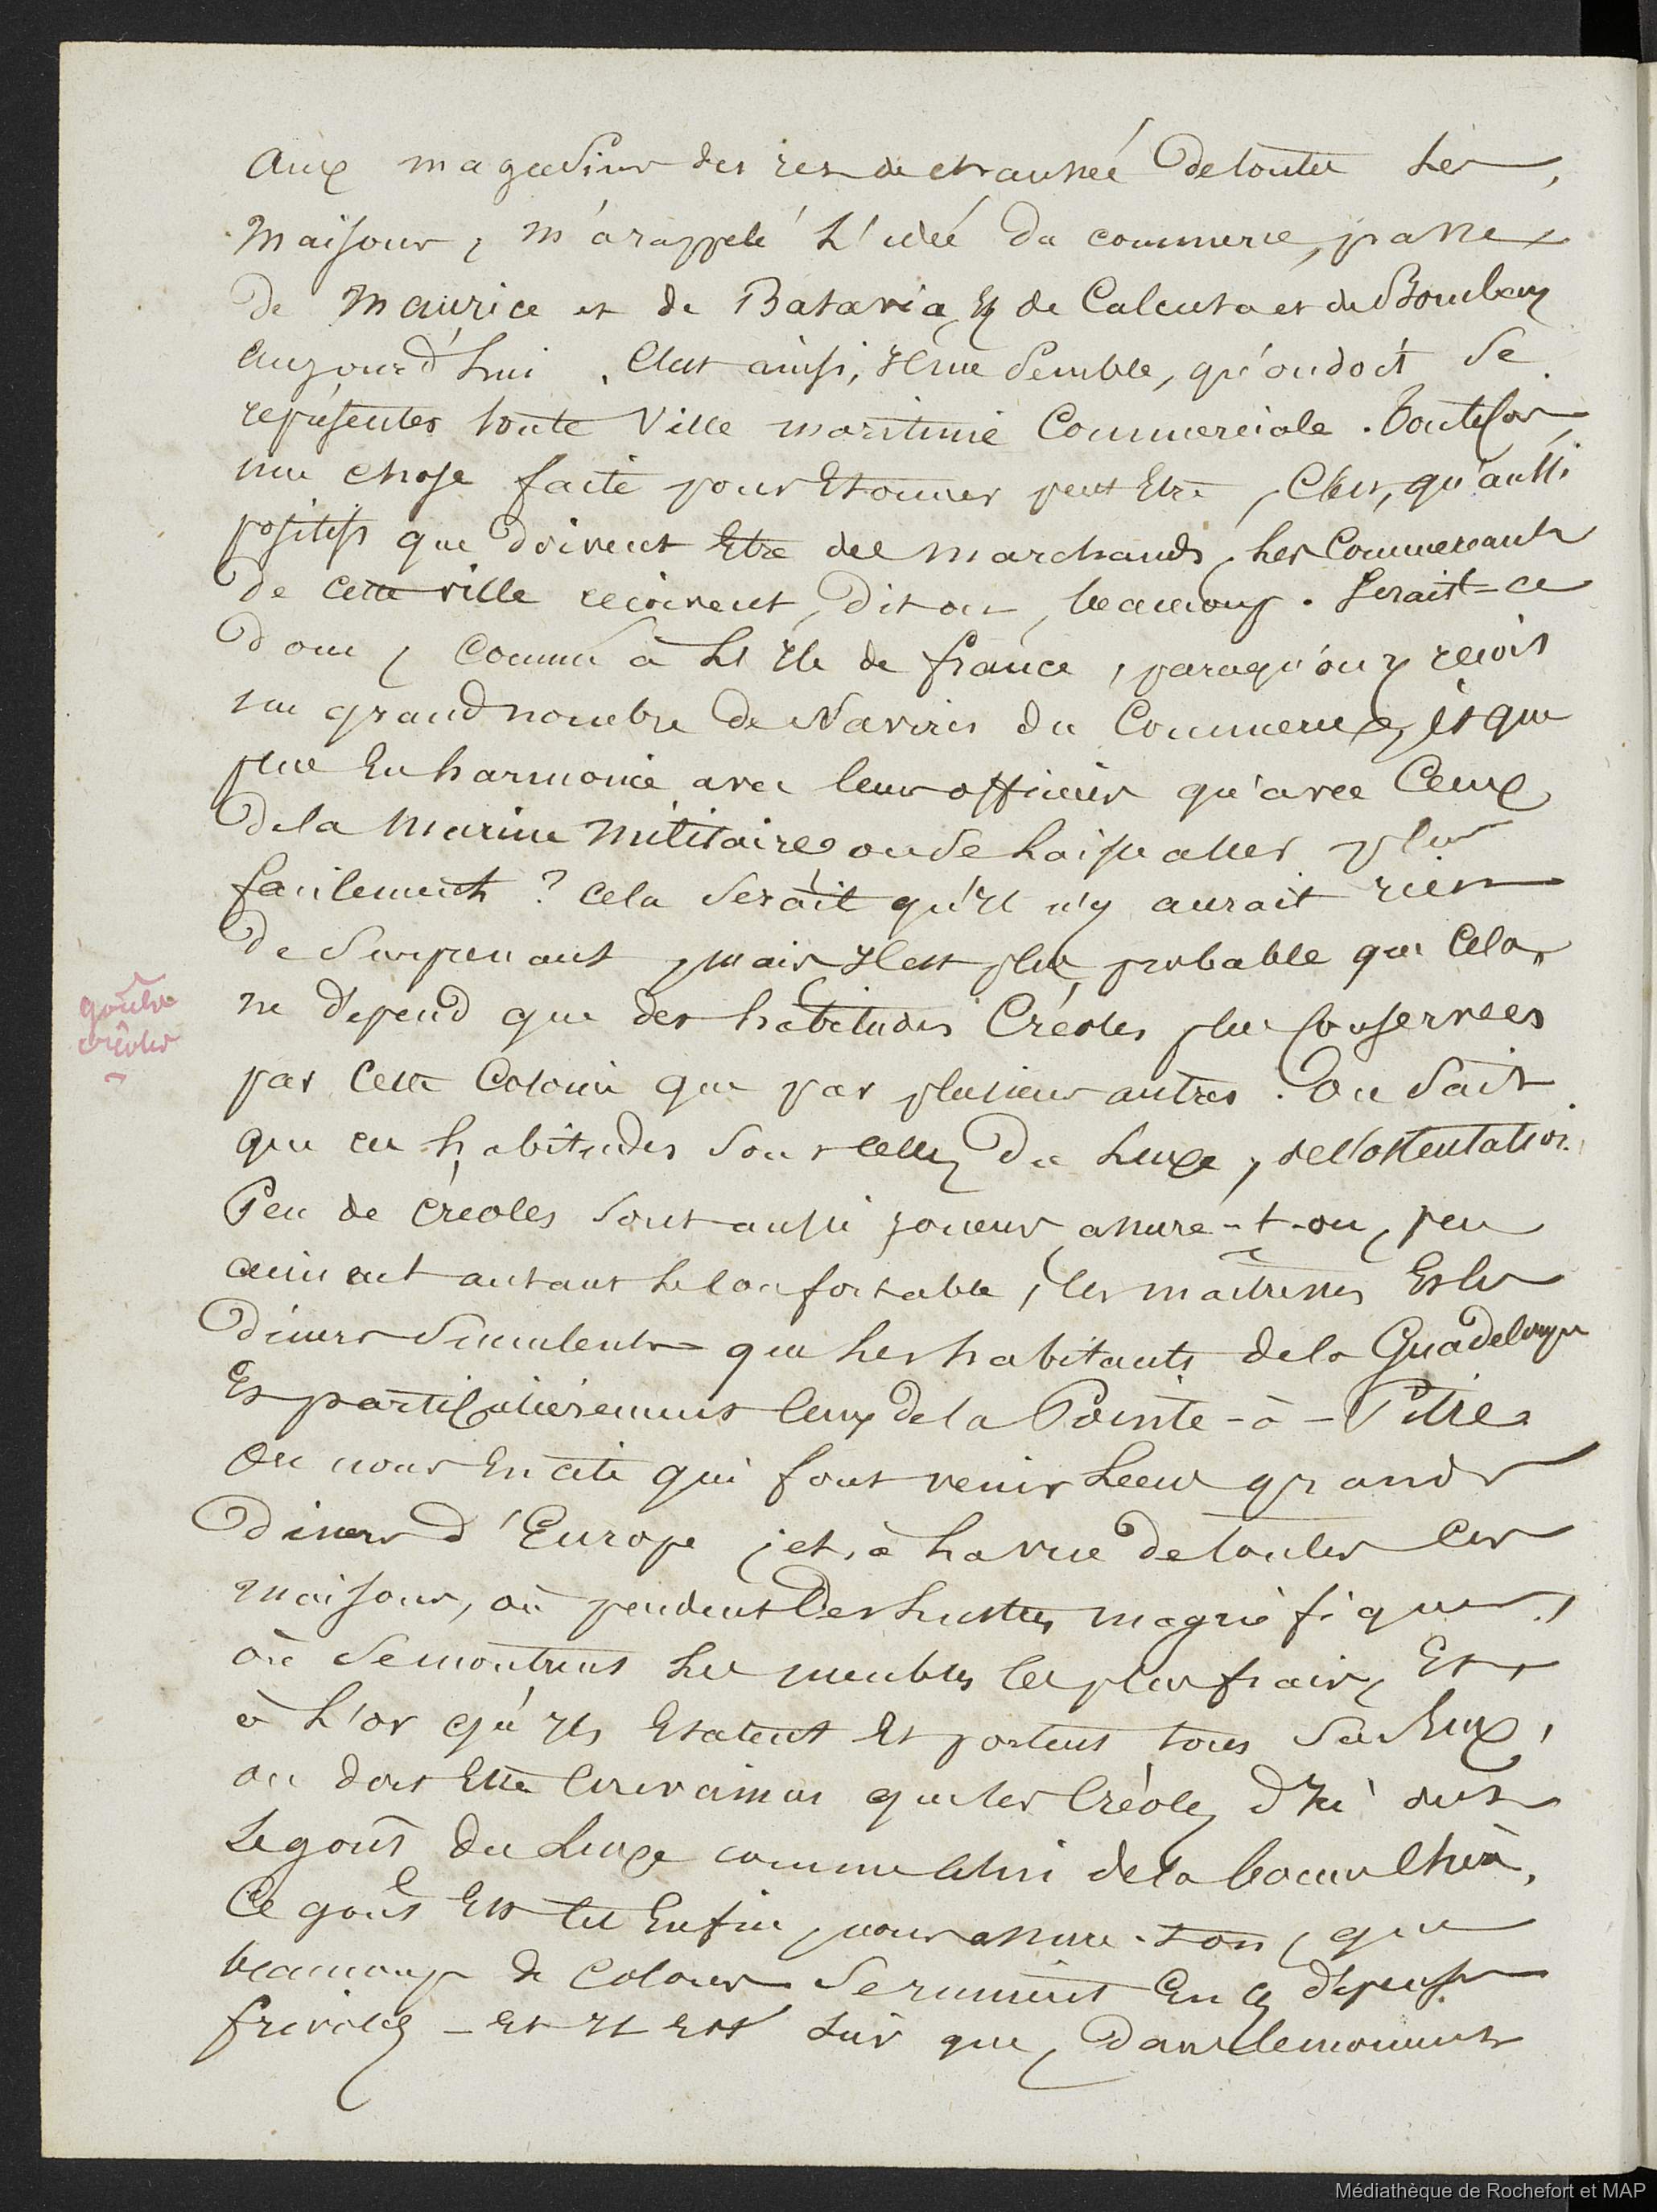 aux magasins des rez de chaussée de toutes les
maisons, m'a rappelé l'idée du commerce, passé
de Maurice et de Batavia, et de Calcuta et de Bombay
aujourd'hui. C'est ainsi, il me semble, qu'on doit se
représenter toute ville maritime commerciale. Toutefois
une chose faite pour étonner peut être, c'est, qu'aussi
positifs que doivent être des marchands, les commercants
de cette ville recoivent, dit on, beaucoup. Serait-ce
donc, comme à l'Ile de france, parcequ'on y recoit
un grand nombre de Navires du Commerce, et que
plus en harmonie avec leurs officiers qu'avec ceux
de la marine militaire on se laisse aller plus
facilement ? cela serait qu'il n'y aurait rien
de surprenant, mais il est plus probable que cela
ne dépend que des habitudes Créoles plus conservées
par cette colonie que par plusieurs autres. On sait
que ces habitudes sont celles du luxe, de l'ostentation.
Peu de créoles sont aussi joueurs assure-t-on, peu
aiment autant le confortable, les maitresses et les
diners succulents que les habitants de la Guadeloupe
et particulièrement ceux de la Pointe-à-Pitre
on nous en cite qui font venir leurs grands
diners d'Europe ; et, à la vue de toutes les
maisons, où pendent des lustres magnifiques,
où se montrent les meubles les plus frais, et
à l'or qu'ils étalent et portent tous sur eux,
on doit être convaincu que les Créoles d'ici ont
le goût du luxe comme celui de la bonne chère.
Ce goût est tel enfin, nous assure-ton, que
beaucoup de colons se ruinent en ces dépenses
frivoles - et il est sûr que, dans le moment
goûts
créoles
Médiathèque de Rochefort et MAP